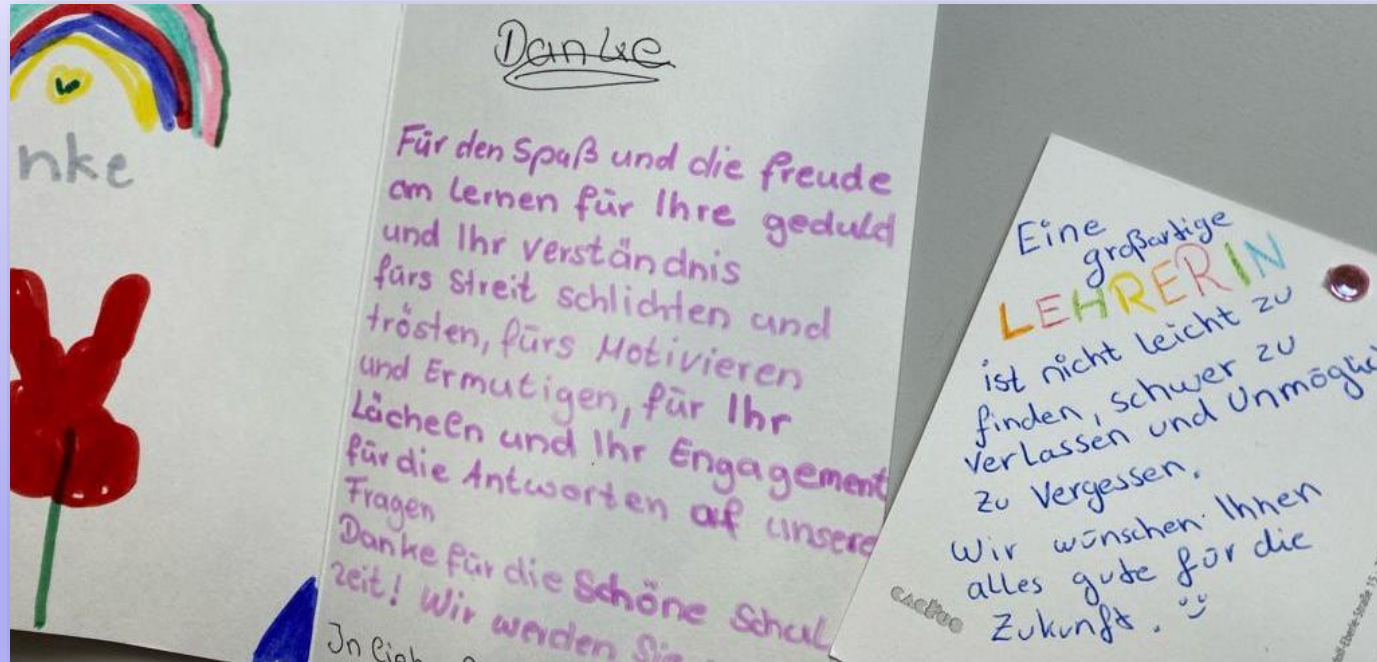 nke
Danke
Für den Spaß und die freude
am lernen für Ihre geduld
und Ihr verständnis
fürs Streit schlichten und
trösten, fürs Motivieren
und Ermutigen, für Ihr
Lächeln und Ihr Engagement
für die Antworten auf unsere
Fragen
Danke für die Schöne Schul
zeit! Wir werden Sie
In
Eine
großartige
LEHRERIN
ist nicht leicht zu
finden, schwer zu
verlassen und Unmöglic
zu Vergessen.
Wir wünschen Ihnen
alles gute für die
Zukunft.
cactus